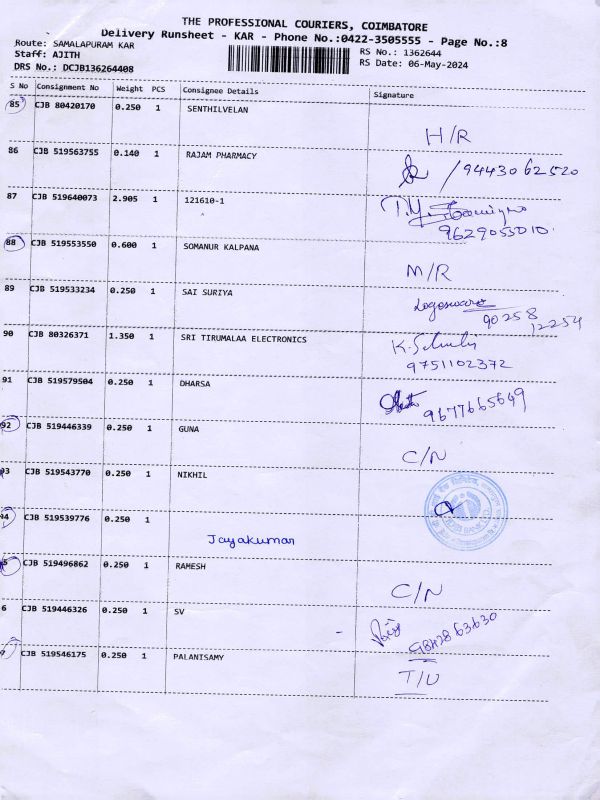 THE PROFESSIONAL COURIERS, COIMBATORE
Delivery Runsheet - KAR - Phone No.:0422-3505555 - Page No.:8
Route: SAMALAPURAM KAR
RS No.: 1362644
Staff: AJITH
RS Date: 06-May-2024
DRS No.: DCJB136264408
S No Consignment No Weight PCS Consignee Details Signature
85 CJB 80420170 0.250 1 SENTHILVELAN
H/R
86 CJB 519563755 0.140 1 RAJAM PHARMACY
/9443062520
87 CJB 519640073 2.905 1 121610-1
9629053010
88 CJB 519553550 0.600 1 SOMANUR KALPANA
M/R
89 CJB 519533234 0.250 1 SAI SURIYA
90258
12254
90 CJB 80326371 1.350 1 SRI TIRUMALAA ELECTRONICS
9751102372
91 CJB 519579504 0.250 1 DHARSA
9677665649
92 CJB 519446339 0.250 1 GUNA
C/N
93 CJB 519543770 0.250 1 NIKHIL
94 CJB 519539776 0.250 1
Jayakumar
95 CJB 519496862 0.250 1 RAMESH
C/N
6 CJB 519446326 0.250 1 SV
9842863630
9 CJB 519546175 0.250 1 PALANISAMY
T/U